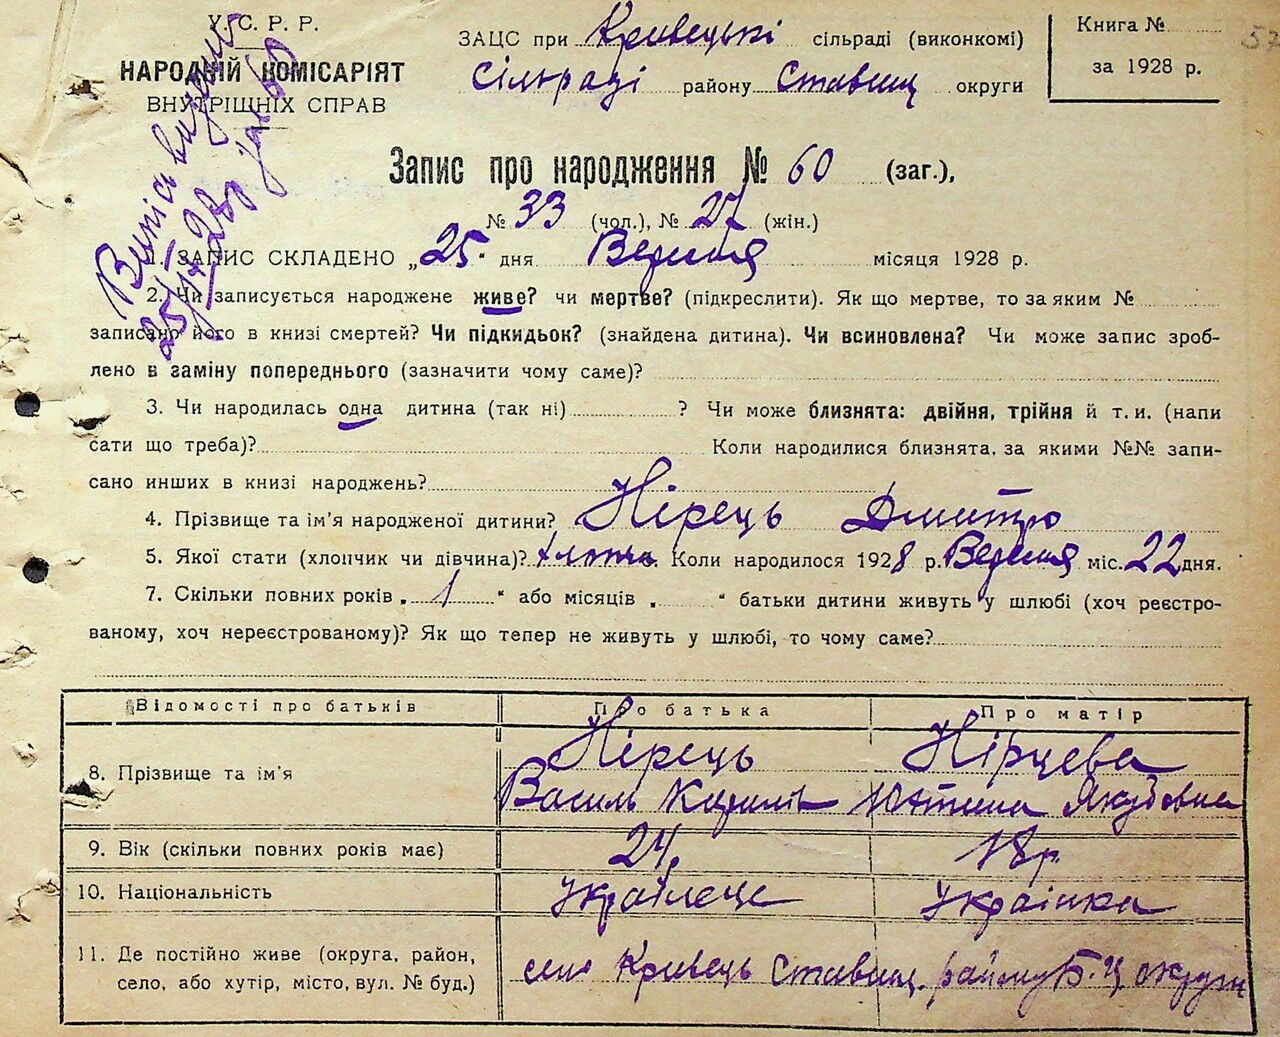 У. С. Р. Р.
НАРОДНІЙ КОМІСАРІЯТ
ВНУТРІШНІХ СПРАВ
ЗАЦС при Кривецькі сільраді (виконкомі)
Сільраді району Ставищ округи
Книга №
за 1928 р.
57
Випись видана
Запис про народження № 60 (заг.),
№ 33 (чол.), № 27 (жін.)
1. ЗАПИС СКЛАДЕНО „25" дня Вересня місяця 1928 р.
2. Чи записується народжене живе? чи мертве? (підкреслити). Як що мертве, то за яким №
записано його в книзі смертей? Чи підкидьок? (знайдена дитина). Чи всиновлена? Чи може запис зроб-
лено в заміну попереднього (зазначити чому саме)?
3. Чи народилась одна дитина (так ні) ? Чи може близнята: двійня, трійня й т. и. (напи
сати що треба)? Коли народилися близнята, за якими №№ запи-
сано инших в книзі народжень?
4. Прізвище та ім'я народженої дитини? Нірець Дмитро
5. Якої стати (хлопчик чи дівчина)? Коли народилося 1928 р. Вересня міс. 22 дня.
7. Скільки повних років „ 1 " або місяців „ " батьки дитини живуть у шлюбі (хоч реєстро-
ваному, хоч нереєстрованому)? Як що тепер не живуть у шлюбі, то чому саме?
Відомості про батьків Про батька Про матір
8. Прізвище та ім'я Нірець Нірцева
Василь Кирилів Юстина Якубовна
9. Вік (скільки повних років має) 24. 18 р.
10. Національність Українець Українка
11. Де постійно живе (округа, район,
село, або хутір, місто, вул. № буд.) село Кривець Ставищ. району Б.-Ц. округи